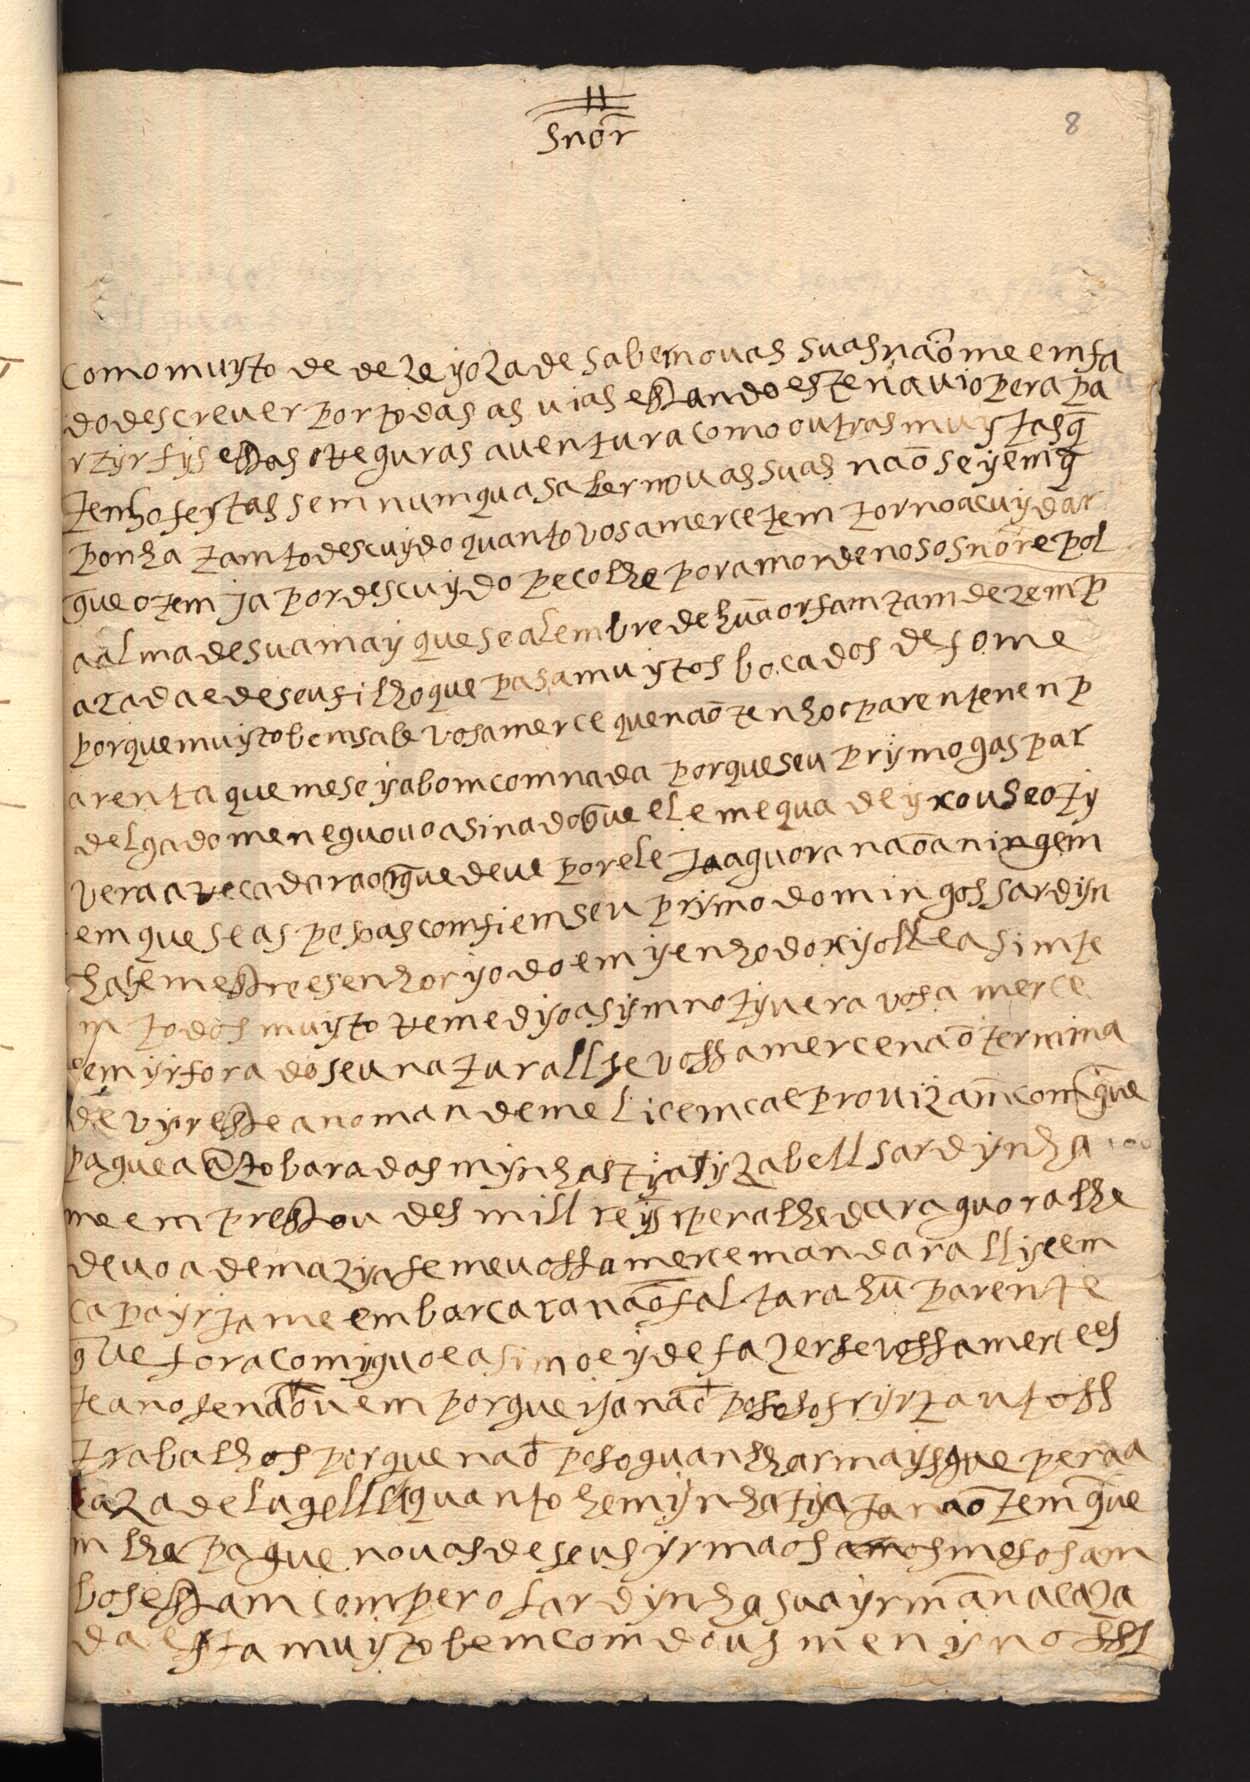 8
Snõr
como muyto de dezeyoza de saber novas suas não me emfa
do descrever por todas as vias estando este navio pera pa
rtyr fys estas reguras aventura como outras muytas q̃
tenho feytas sem numqua saber novas suas não sey em q̃
ponha tamto descuydo quanto vosa merce tem torno a cuydar
que o tem ja por descuydo peco lhe por amor de noso snõr e pol
a alma de sua may que se alembre de hũa orfam tam dezemp
arada e de seu filho que pasa muytos bocados de fome
porque muyto bem sabe vosa merce que não tenho parente nen p
arenta que me seya bom com nada porque seu prymo gaspar
delgado me neguou o asinado que ele me qua deyxou se o ty
vera a recadarao que deve por ele ja aguora não a ningem
em que se as pesoas comfiem seu prymo domingos sardyn
ha he mestre e senhor yo do emyenho do xyolle asim te
m todos muyto remedyo asym no tyvera vosa merce
em yr fora do seu naturall se vossa merce não termina
de vyr este ano mande me licemca e provizam com que
pague a
me emprestou des mill reys pera lhe dar aguora lhe
devo a demazya se me vossa merce mandara llycem
ca pa yr ja me embarcara não faltara hũ parente
que fora comyguo e asim o ey de fazer se vossa merce es
te ano se não vem porque ya não poso sofryr tantoss
trabalhos porque não poso guanhar mays que pera a
caza de lugell quanto he mynha tya ja não tem que
m lhe page novas de seus yrmãos mosos am
bos estam com pero sardynha sua yrmã na caza
da esta muyto bem com dous menynos